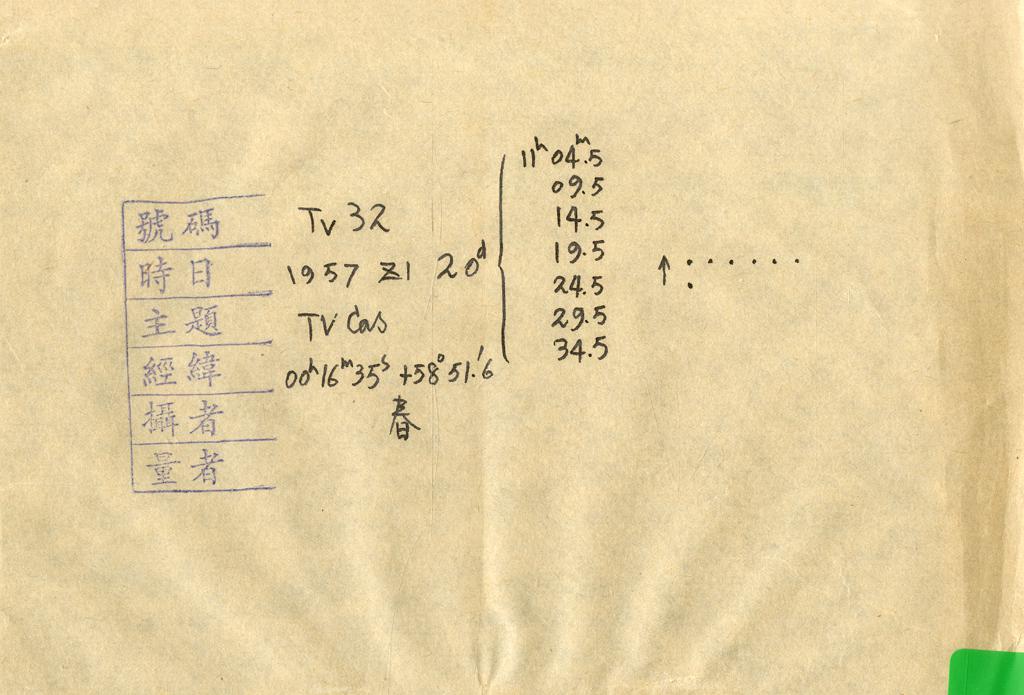 號碼 Tv 32
時日 1957 XI 20ᵈ
11ʰ 04ᵐ.5
09.5
14.5
19.5
24.5
29.5
34.5
主題 TV Cas
經緯 00ʰ16ᵐ35ˢ +58°51.'6
攝者 春
量者